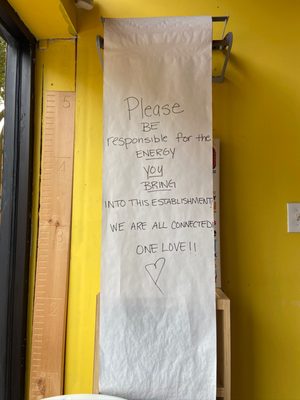 Please
BE
responsible for the
ENERGY
YOU
BRING
INTO THIS ESTABLISHMENT
WE ARE ALL CONNECTED
ONE LOVE!!
5
4
3
2